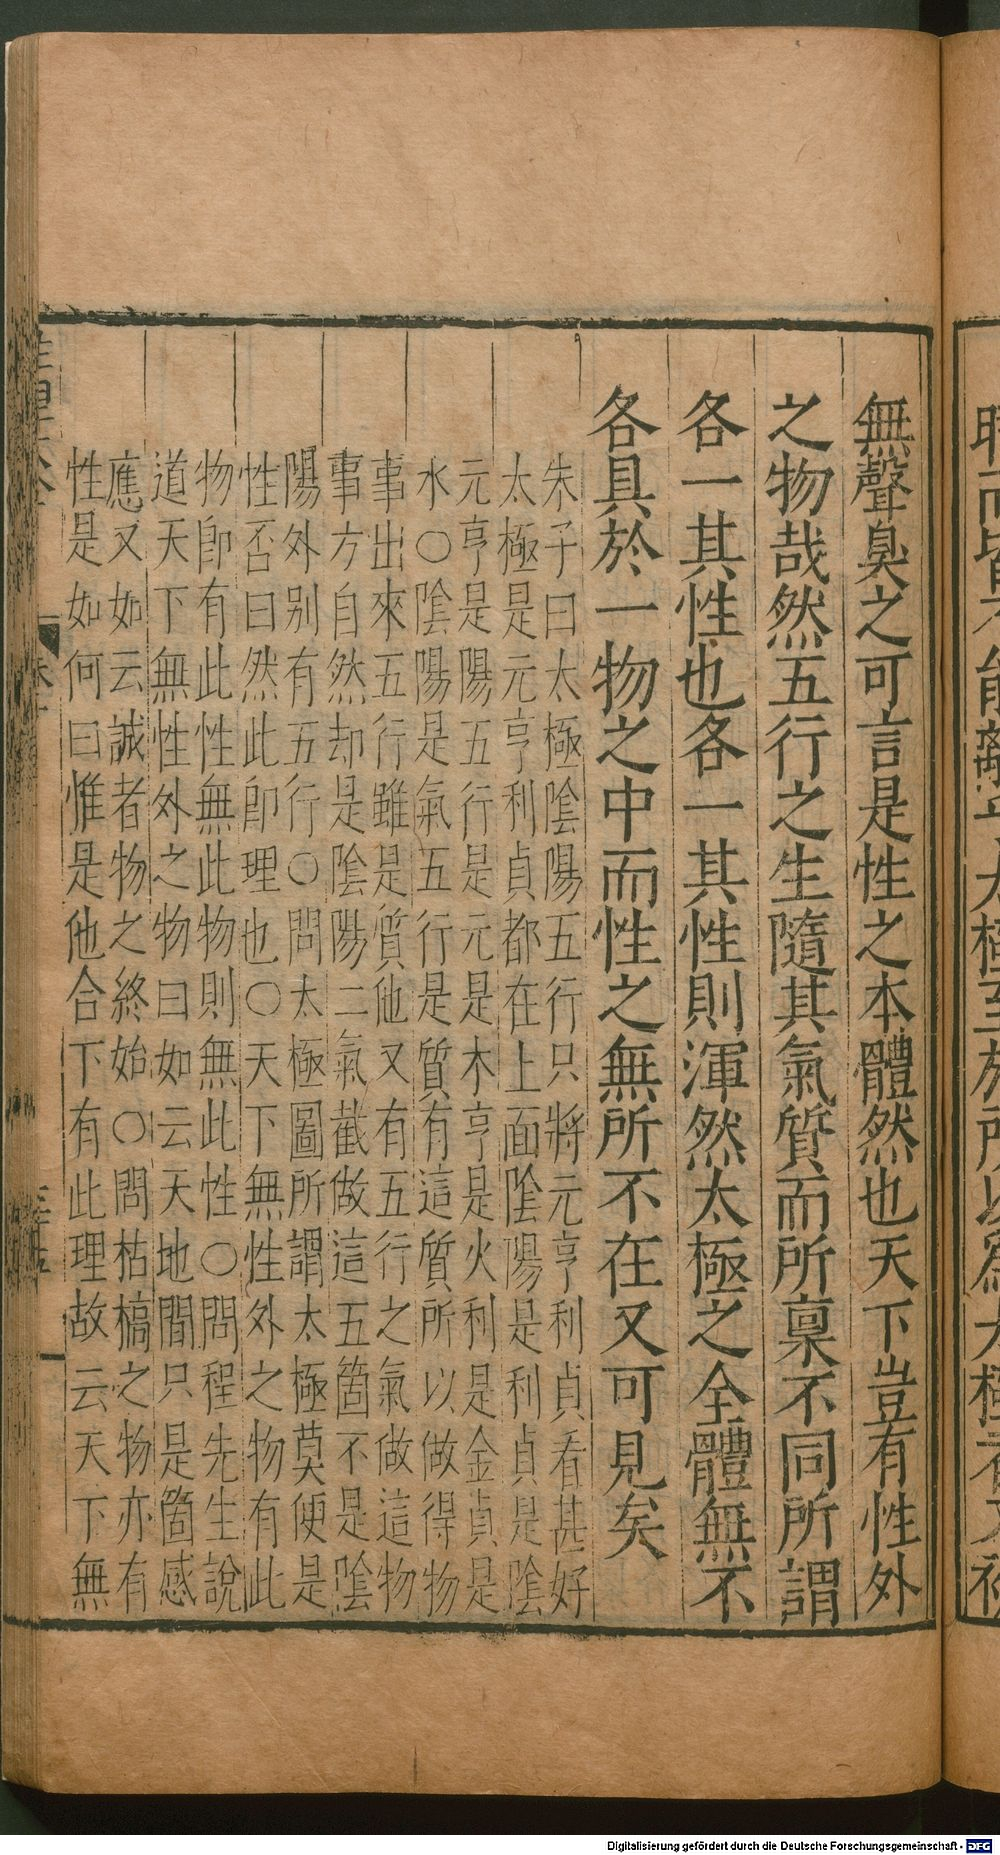 無聲臭之可言是性之本體然也天下豈有性外
之物哉然五行之生隨其氣質而所稟不同所謂
各一其性也各一其性則渾然太極之全體無不
各具於一物之中而性之無所不在又可見矣
朱子曰太極陰陽五行只將元亨利貞看甚好
太極是元亨利貞都在上面陰陽是利貞是陰
元亨是陽五行是元是木亨是火利是金貞是
水○陰陽是氣五行是質有這質所以做得物
事出來五行雖是質他又有五行之氣做這物
事方自然却是陰陽二氣截做這五箇不是陰
陽外别有五行○問太極圖所謂太極莫便是
性否曰然此卽理也○天下無性外之物有此
物卽有此性無此物則無此性○問程先生說
道天下無性外之物曰如云天地間只是箇感
應又如云誠者物之終始○問枯槁之物亦有
性是如何曰惟是他合下有此理故云天下無
Digitalisierung gefördert durch die Deutsche Forschungsgemeinschaft - DFG